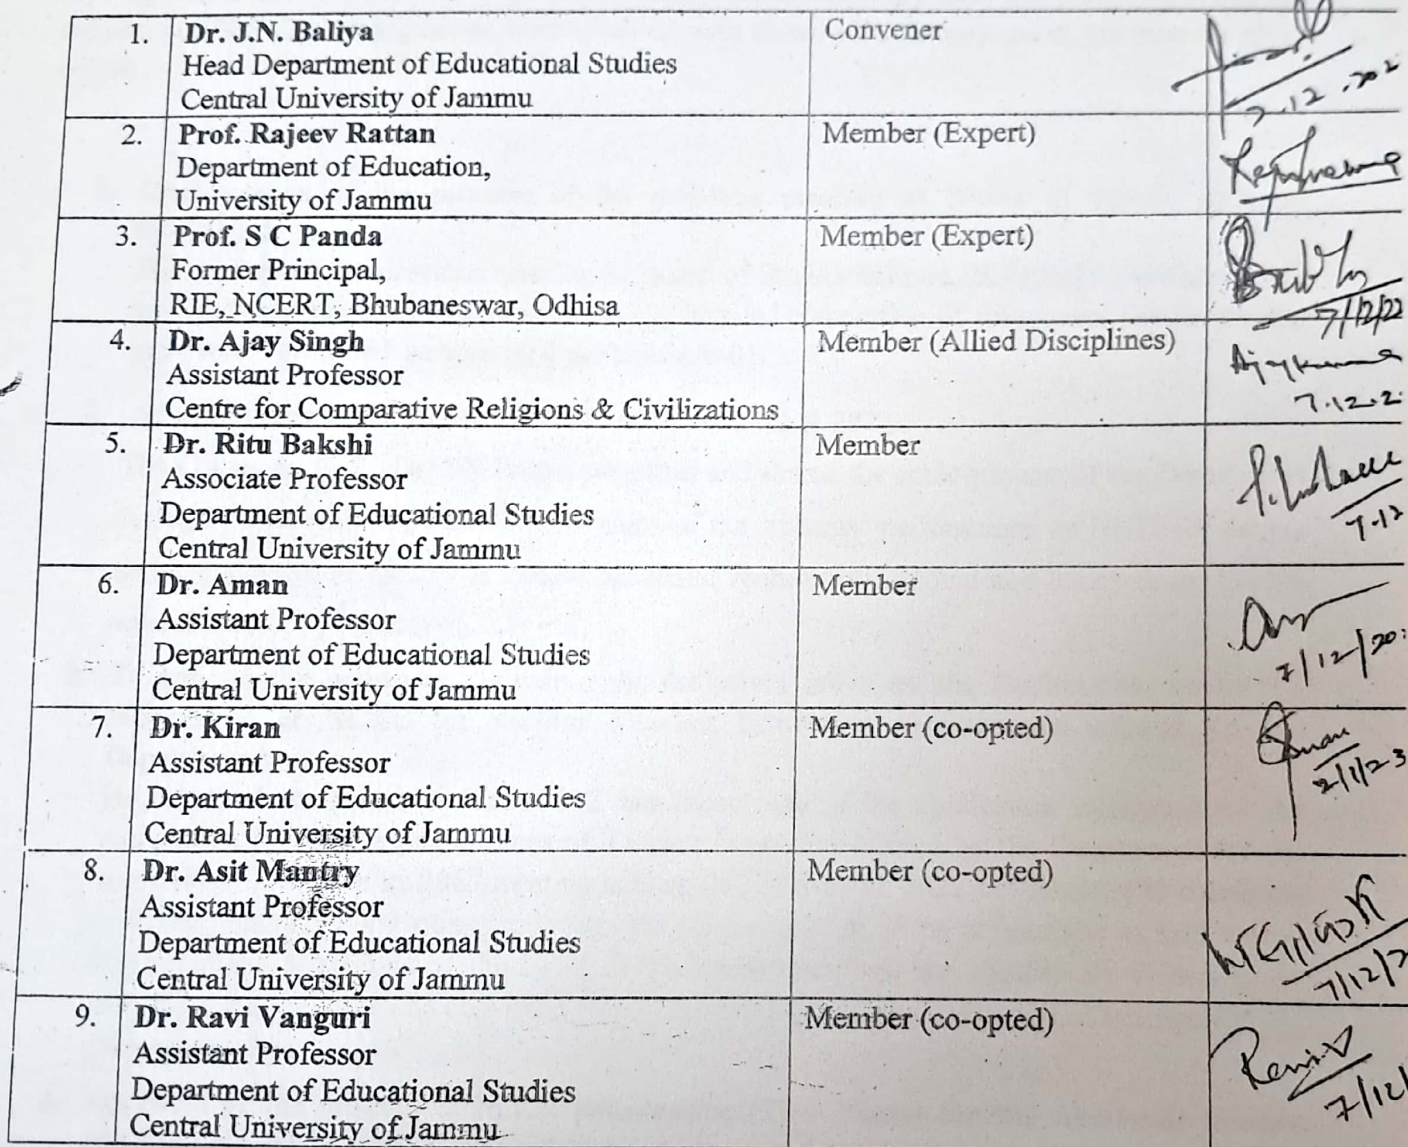 1. Dr. J.N. Baliya
Head Department of Educational Studies
Central University of Jammu
Convener
2. Prof. Rajeev Rattan
Department of Education,
University of Jammu
Member (Expert)
3. Prof. S C Panda
Former Principal,
RIE, NCERT, Bhubaneswar, Odhisa
Member (Expert)
7/12/22
4. Dr. Ajay Singh
Assistant Professor
Centre for Comparative Religions & Civilizations
Member (Allied Disciplines)
7.12.2
5. Dr. Ritu Bakshi
Associate Professor
Department of Educational Studies
Central University of Jammu
Member
7.12
6. Dr. Aman
Assistant Professor
Department of Educational Studies
Central University of Jammu
Member
7/12/20
7. Dr. Kiran
Assistant Professor
Department of Educational Studies
Central University of Jammu
Member (co-opted)
2/1/23
8. Dr. Asit Mantry
Assistant Professor
Department of Educational Studies
Central University of Jammu
Member (co-opted)
7/12/2
9. Dr. Ravi Vanguri
Assistant Professor
Department of Educational Studies
Central University of Jammu
Member (co-opted)
7/12/